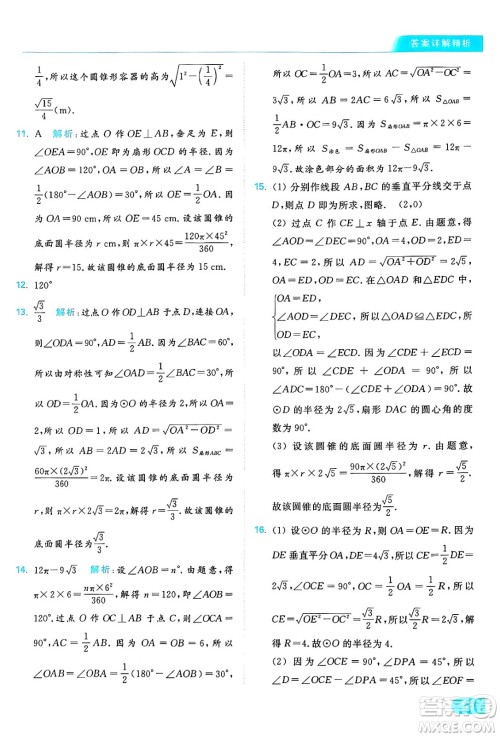 答案详解精析
1/4, 所以这个圆锥形容器的高为√(1²-(1/4)²)=
√15/4(m).
11. A 解析: 过点 O 作 OE⊥AB, 垂足为 E, 则
∠OEA=90°, OE 即为扇形 OCD 的半径. 因为
OA=OB, ∠AOB=120°, 所以∠OAB=∠OBA=
1/2(180°-∠AOB)=30°, 所以 OE=1/2OA. 因为
OA=90 cm, 所以 OE=45 cm. 设该圆锥的
底面圆半径为 r cm, 则 π×r×45=120π×45²/360,
解得 r=15. 故该圆锥的底面圆半径为 15 cm.
12. 120°
13. √3/3 解析: 过点 O 作 OD⊥AB 于点 D, 连接 OA,
则∠ODA=90°, AD=1/2AB. 因为∠BAC=60°,
所以由对称性可知∠OAD=1/2∠BAC=30°, 所以
OD=1/2OA. 因为⊙O 的半径为 2, 所以 OA=2,
所以 OD=1, 所以 AD=√(OA²-OD²)=
√3, 所以 AB=2AD=2√3, 所以 S扇形BAC=
60π×(2√3)²/360=2π. 设该圆锥的底面圆半径为
r, 则 π×r×2√3=2π, 解得 r=√3/3. 故该圆锥的
底面圆半径为√3/3.
14. 12π-9√3 解析: 设∠AOB=n°. 由题意, 得
π×2×6=nπ×6²/360, 解得 n=120, 所以∠AOB=
120°. 过点 O 作 OC⊥AB 于点 C, 则∠OCA=
90°, AC=1/2AB. 因为 OA=OB=6, 所以
∠OAB=∠OBA=1/2(180°-∠AOB)=30°, 所以
所以 OC=1/2OA=3, 所以 AC=√(OA²-OC²)=
3√3, 所以 AB=2AC=6√3, 所以 S△OAB=
1/2AB·OC=9√3. 因为 S扇形OAB=π×2×6=
12π, 所以 S涂色=S扇形OAB-S△OAB=12π-
9√3. 故涂色部分的面积为 12π-9√3.
15. (1) 分别作线段 AB, BC 的垂直平分线交于点
D, 则点 D 即为所求, 图略. (2,0)
(2) 过点 C 作 CE⊥x 轴于点 E. 由题意, 得
∠AOD=∠DEC=90°, OA=4, OD=2, DE=
4, EC=2. 所以 AD=√(OA²+OD²)=2√5, OA=
DE, OD=EC. 在△OAD 和△EDC 中,
OA=ED,
∠AOD=∠DEC, 所以△OAD≌△EDC, 所以
OD=EC,
∠OAD=∠EDC. 因为∠OAD+∠ODA=
90°, 所以∠CDE+∠ODA=90°, 所以∠ADC=
90°. 故⊙D 的半径为 2√5, 扇形 DAC 的圆心角的度数为
90°.
(3) 设该圆锥的底面圆半径为 r. 由题意,
得 π×r×2√5=90π×(2√5)²/360, 解得 r=√5/2.
故该圆锥的底面圆半径为√5/2.
16. (1) 设⊙O 的半径为 R, 则 OA=OE=R. 因
为直径 AB⊥DE, 所以∠OCE=90°, CE=1/2DE=
√3/2. 因为 OC=1/2OA, 所以 OC=1/2R, 所以
CE=√(OE²-OC²)=√3/2R, 所以√3/2R=√3/2,
解得 R=1. 故⊙O 的半径为 1.
(2) 因为∠OCE=90°, ∠DPA=45°, 所以
∠D=90°-∠DPA=45°, 所以∠EOF=